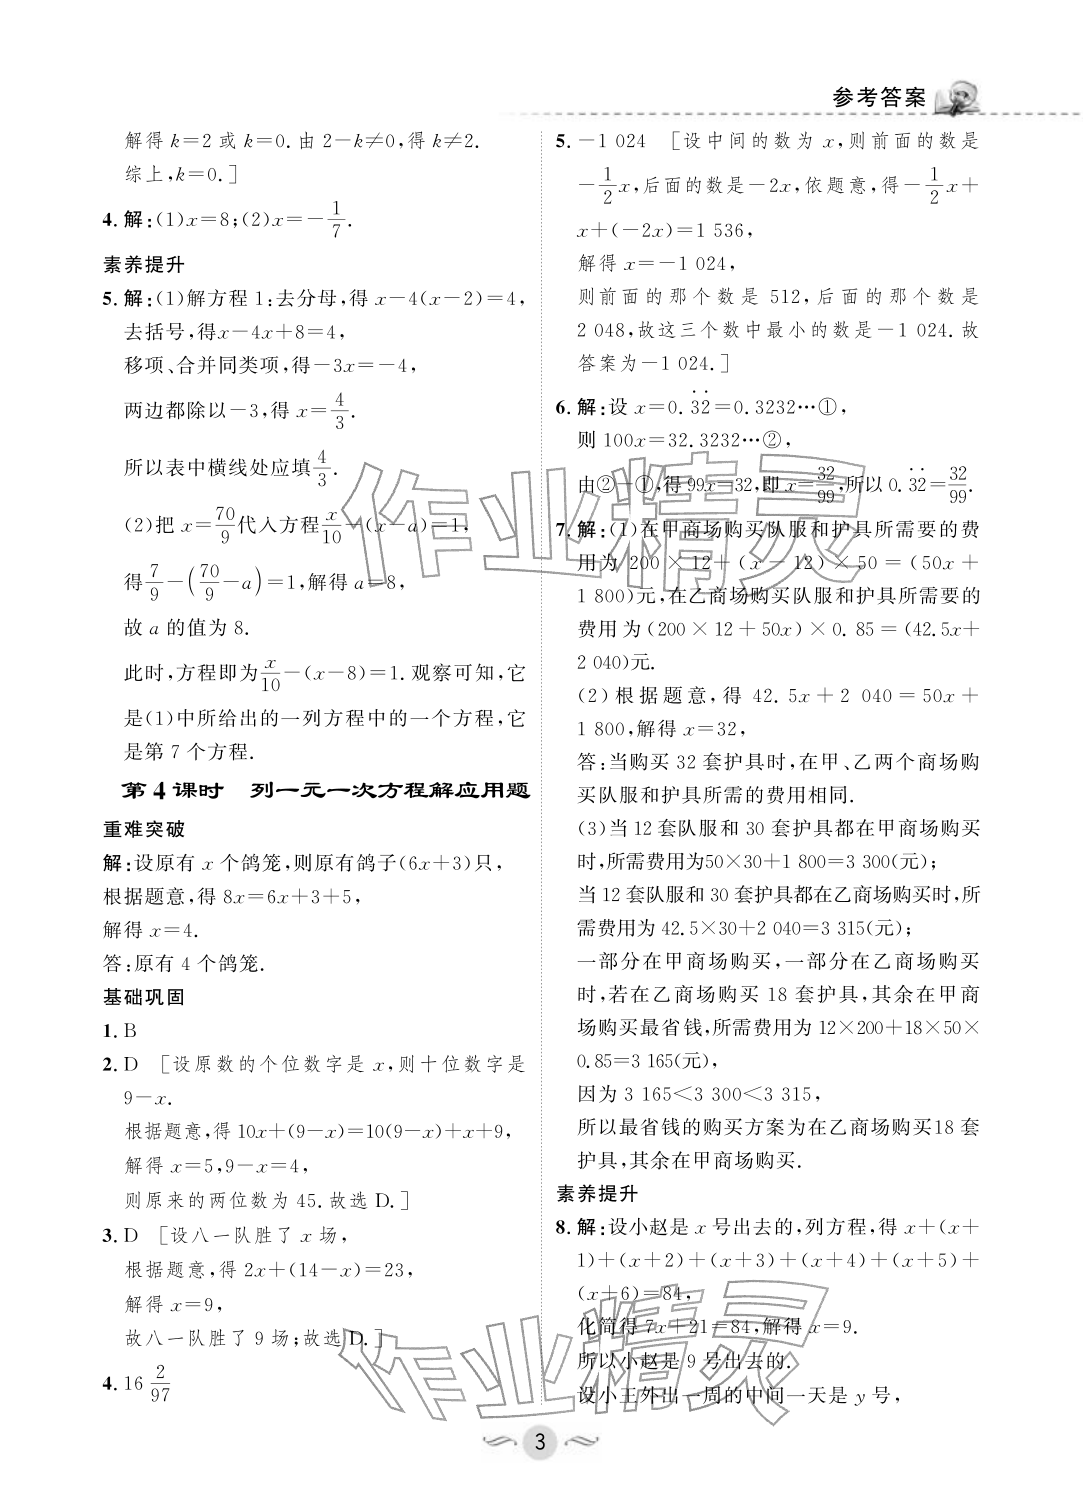 参考答案
解得 k=2 或 k=0. 由 2-k≠0,得 k≠2.
综上,k=0. ]
4. 解:(1)x=8;(2)x=-1/7.
素养提升
5. 解:(1)解方程 1:去分母,得 x-4(x-2)=4,
去括号,得x-4x+8=4,
移项、合并同类项,得-3x=-4,
两边都除以-3,得 x=4/3.
所以表中横线处应填4/3.
(2)把 x=70/9代入方程x/10-(x-a)=1,
得7/9-(70/9-a)=1,解得 a=8,
故 a 的值为 8.
此时,方程即为x/10-(x-8)=1. 观察可知,它
是(1)中所给出的一列方程中的一个方程,它
是第 7 个方程.
第 4 课时 列一元一次方程解应用题
重难突破
解:设原有 x 个鸽笼,则原有鸽子(6x+3)只,
根据题意,得 8x=6x+3+5,
解得 x=4.
答:原有 4 个鸽笼.
基础巩固
1. B
2. D [设原数的个位数字是 x,则十位数字是
9-x.
根据题意,得 10x+(9-x)=10(9-x)+x+9,
解得 x=5,9-x=4,
则原来的两位数为 45. 故选 D. ]
3. D [设八一队胜了 x 场,
根据题意,得 2x+(14-x)=23,
解得 x=9,
故八一队胜了 9 场;故选 D. ]
4. 16 2/97
5. -1 024 [设中间的数为 x,则前面的数是
-1/2x,后面的数是-2x,依题意,得-1/2x+
x+(-2x)=1 536,
解得 x=-1 024,
则前面的那个数是 512,后面的那个数是
2 048,故这三个数中最小的数是-1 024. 故
答案为-1 024. ]
6. 解:设 x=0. 3̇2̇=0. 3232…①,
则 100x=32. 3232…②,
由②-①,得 99x=32,即 x=32/99,所以 0. 3̇2̇=32/99.
7. 解:(1)在甲商场购买队服和护具所需要的费
用为 200×12+(x-12)×50=(50x+
1 800)元,在乙商场购买队服和护具所需要的
费用为(200×12+50x)×0. 85=(42.5x+
2 040)元.
(2)根据题意,得 42. 5x+2 040=50x+
1 800,解得 x=32,
答:当购买 32 套护具时,在甲、乙两个商场购
买队服和护具所需的费用相同.
(3)当 12 套队服和 30 套护具都在甲商场购买
时,所需费用为50×30+1 800=3 300(元);
当 12 套队服和 30 套护具都在乙商场购买时,所
需费用为 42.5×30+2 040=3 315(元);
一部分在甲商场购买,一部分在乙商场购买
时,若在乙商场购买 18 套护具,其余在甲商
场购买最省钱,所需费用为 12×200+18×50×
0.85=3 165(元),
因为 3 165<3 300<3 315,
所以最省钱的购买方案为在乙商场购买18 套
护具,其余在甲商场购买.
素养提升
8. 解:设小赵是 x 号出去的,列方程,得 x+(x+
1)+(x+2)+(x+3)+(x+4)+(x+5)+
(x+6)=84,
化简得 7x+21=84,解得 x=9.
所以小赵是 9 号出去的.
设小王外出一周的中间一天是 y 号,
作业精灵
作业精灵
3